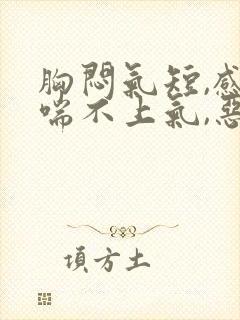 胸悶氣短,感
喘不上氣,惡
項方土